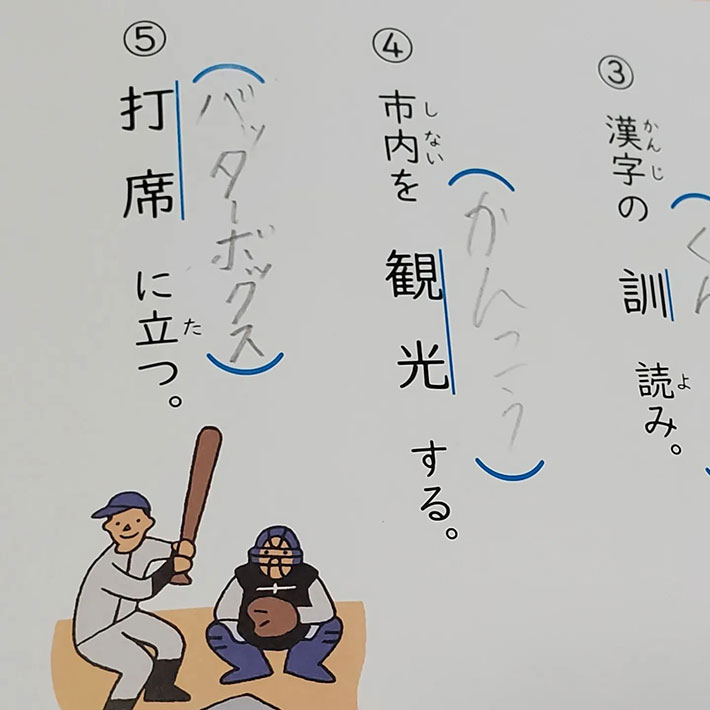 ③
漢字の訓読み。
かんじ
よ
④
市内を観光する。
しない
(かんこう)
⑤
打席に立つ。
た
(バッターボックス)